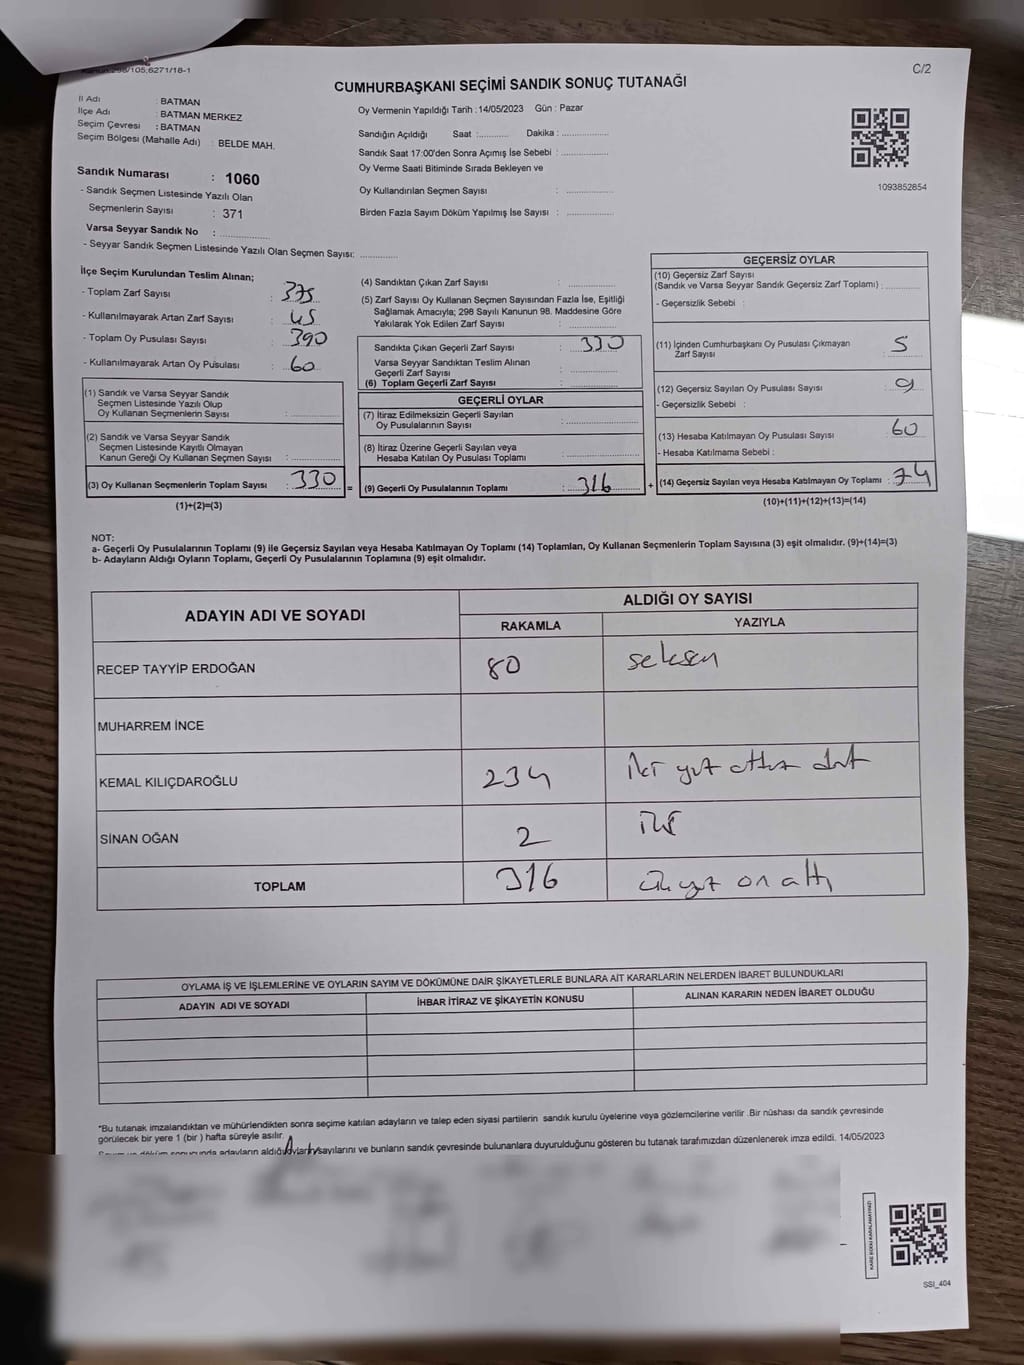 298/105;6271/18-1
C/2
CUMHURBAŞKANI SEÇİMİ SANDIK SONUÇ TUTANAĞI
İl Adı : BATMAN
İlçe Adı : BATMAN MERKEZ
Seçim Çevresi : BATMAN
Seçim Bölgesi (Mahalle Adı) : BELDE MAH.
Sandık Numarası : 1060
- Sandık Seçmen Listesinde Yazılı Olan
Seçmenlerin Sayısı : 371
Varsa Seyyar Sandık No : ..............
- Seyyar Sandık Seçmen Listesinde Yazılı Olan Seçmen Sayısı: ............
Oy Vermenin Yapıldığı Tarih : 14/05/2023 Gün : Pazar
Sandığın Açıldığı Saat :........... Dakika : ..............
Sandık Saat 17:00'den Sonra Açımış İse Sebebi : ..............
Oy Verme Saati Bitiminde Sırada Bekleyen ve
Oy Kullandırılan Seçmen Sayısı : ..............
Birden Fazla Sayım Döküm Yapılmış İse Sayısı : ..............
1093852854
İlçe Seçim Kurulundan Teslim Alınan;
- Toplam Zarf Sayısı : 375
- Kullanılmayarak Artan Zarf Sayısı : 45
- Toplam Oy Pusulası Sayısı : 390
- Kullanılmayarak Artan Oy Pusulası : 60
(1) Sandık ve Varsa Seyyar Sandık
Seçmen Listesinde Yazılı Olup
Oy Kullanan Seçmenlerin Sayısı : ..............
(2) Sandık ve Varsa Seyyar Sandık
Seçmen Listesinde Kayıtlı Olmayan
Kanun Gereği Oy Kullanan Seçmen Sayısı : ..............
(3) Oy Kullanan Seçmenlerin Toplam Sayısı : 330 =
(1)+(2)=(3)
(4) Sandıktan Çıkan Zarf Sayısı : ..............
(5) Zarf Sayısı Oy Kullanan Seçmen Sayısından Fazla İse, Eşitliği
Sağlamak Amacıyla; 298 Sayılı Kanunun 98. Maddesine Göre
Yakılarak Yok Edilen Zarf Sayısı : ..............
Sandıkta Çıkan Geçerli Zarf Sayısı : 330
Varsa Seyyar Sandıktan Teslim Alınan
Geçerli Zarf Sayısı : ..............
(6) Toplam Geçerli Zarf Sayısı : ..............
GEÇERLİ OYLAR
(7) İtiraz Edilmeksizin Geçerli Sayılan
Oy Pusulalarının Sayısı : ..............
(8) İtiraz Üzerine Geçerli Sayılan veya
Hesaba Katılan Oy Pusulası Toplamı : ..............
(9) Geçerli Oy Pusulalarının Toplamı : 316 +
GEÇERSİZ OYLAR
(10) Geçersiz Zarf Sayısı
(Sandık ve Varsa Seyyar Sandık Geçersiz Zarf Toplamı) : ............
- Geçersizlik Sebebi :
(11) İçinden Cumhurbaşkanı Oy Pusulası Çıkmayan
Zarf Sayısı : 5
(12) Geçersiz Sayılan Oy Pusulası Sayısı : 9
- Geçersizlik Sebebi :
(13) Hesaba Katılmayan Oy Pusulası Sayısı : 60
- Hesaba Katılmama Sebebi :
(14) Geçersiz Sayılan veya Hesaba Katılmayan Oy Toplamı : 74
(10)+(11)+(12)+(13)=(14)
NOT:
a- Geçerli Oy Pusulalarının Toplamı (9) ile Geçersiz Sayılan veya Hesaba Katılmayan Oy Toplamı (14) Toplamları, Oy Kullanan Seçmenlerin Toplam Sayısına (3) eşit olmalıdır. (9)+(14)=(3)
b- Adayların Aldığı Oyların Toplamı, Geçerli Oy Pusulalarının Toplamına (9) eşit olmalıdır.
ADAYIN ADI VE SOYADI
ALDIĞI OY SAYISI
RAKAMLA YAZIYLA
RECEP TAYYİP ERDOĞAN 80 seksen
MUHARREM İNCE
KEMAL KILIÇDAROĞLU 234 iki yüz otuz dört
SİNAN OĞAN 2 iki
TOPLAM 316 üç yüz on altı
OYLAMA İŞ VE İŞLEMLERİNE VE OYLARIN SAYIM VE DÖKÜMÜNE DAİR ŞİKAYETLERLE BUNLARA AİT KARARLARIN NELERDEN İBARET BULUNDUKLARI
ADAYIN ADI VE SOYADI İHBAR İTİRAZ VE ŞİKAYETİN KONUSU ALINAN KARARIN NEDEN İBARET OLDUĞU
*Bu tutanak imzalandıktan ve mühürlendikten sonra seçime katılan adayların ve talep eden siyasi partilerin sandık kurulu üyelerine veya gözlemcilerine verilir .Bir nüshası da sandık çevresinde
görülecek bir yere 1 (bir ) hafta süreyle asılır.
Sayım ve döküm sonucunda adayların aldığı oyların sayılarını ve bunların sandık çevresinde bulunanlara duyurulduğunu gösteren bu tutanak tarafımızdan düzenlenerek imza edildi. 14/05/2023
SSI_404